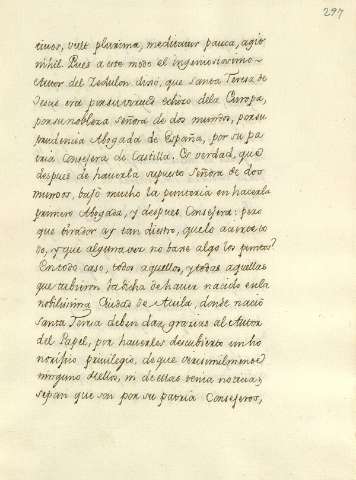 297
tivos, vult plurima, meditatur pauca, agit
nihil. Pues a este modo el ingeniosissimo
Autor del Zedulon dixo, que Santa Teresa de
Jesus era por su virtud echizo dela Europa,
por su nobleza Señora de dos mundos, por su
prudencia Abogada de España, y por su pa
tria Consejera de Castilla. Es verdad, que
despues de haverla supuesto Señora de dos
mundos, bajó mucho la punteria en hacerla
primero Abogada, y despues Consejera: pero
que tirador ay tan diestro, que lo acierte to
do, y que alguna vez no baxe algo los puntos?
En todo caso, todos aquellos, y todas aquellas
que tubieron la dicha de haver nacido en la
nobilissima Ciudad de Avila, donde nació
Santa Teresa deben dar gracias al Autor
del Papel, por haverles descubierto un ho
norifico privilegio, de que verisimilmente
ninguno de ellos, ni de ellas tenia noticia;
sepan que son por su patria Consejeros,